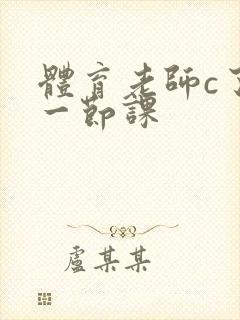 體育老師c了
一節課
盧某某